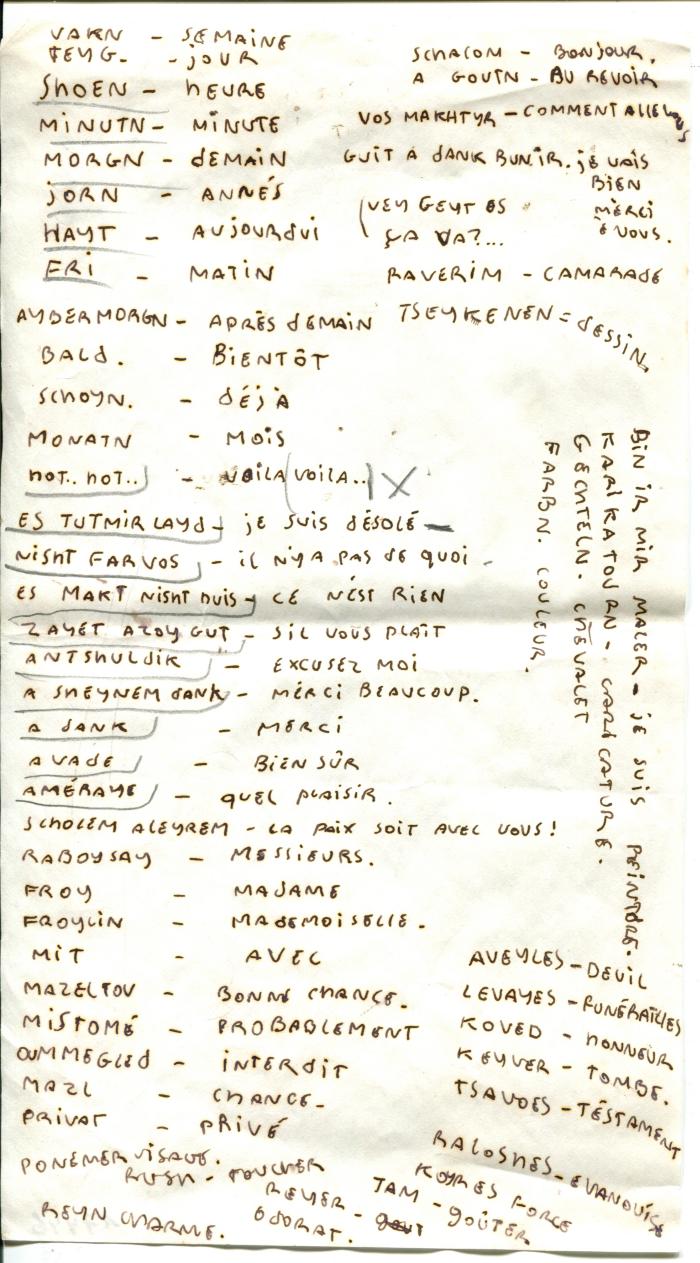 VAKN - SEMAINE
TEYG. - JOUR
SHOEN - HEURE
MINUTN - MINUTE
MORGN - dEMAIN
JORN - ANNÉS
HAYT - AUJOURdUI
FRI - MATIN
AYBERMORGN - APRÈS dEMAIN
BALd. - BIENTÔT
SCHOYN. - dÉJÀ
MONATN - MOIS
HOT.. HOT.. - VOILA VOILA.. X
ES TUTMIR LAYd - JE SUIS dÉSOLÉ
NISHT FARVOS - IL N'YA PAS dE QUOI.
ES MAKT NISHT - CE N'ÉST RIEN
ZAYET AZOY GUT - SIL VOUS PLAÎT
ANTSHULdIK - EXCUSEZ MOI
A SHEYNEM dANK - MÉRCI BEAUCOUP.
A dANK - MERCI
AVADE - BIEN SÛR
AMÉRAYE - QUEL PLAISIR.
SCHOLEM ALEYREM - LA PAIX SOIT AVEC VOUS!
RABOYSAY - MESSIEURS.
FROY - MADAME
FROYLIN - MADEMOISELLE.
MIT - AVEC
MAZELTOV - BONNE CHANCE.
MISTOMÉ - PROBABLEMENT
OUMMEGLED - INTERDIT
MAZL - CHANCE.
PRIVAT - PRIVÉ
PONEMER VISAGE.
RUSH - TOUCHER
REYER - GOUT
ODORAT.
REYN CHARME.
SCHALOM - BONJOUR.
A GOUTN - AU REVOIR
VOS MAKHTYR - COMMENT ALLEZ VOUS
GUIT A dANK BUN'IR. JE VAIS
BIEN
MÈRCI
È VOUS.
VEY GEYT ES
ÇA VA?...
RAVERIM - CAMARADE
TSEYKENEN = dESSIN.
BIN IR MIR MALER - JE SUIS PEINTRE.
KARIKATOURN - CARICATURE.
GECHTELN. CHEVALET
FARBN. COULEUR.
AVEYLES - DEUIL
LEVAYES - FUNÉRAILLES
KOVED - HONNEUR
KEYVER - TOMBE.
TSAVOES - TÈSTAMENT
RALOSHES - EVANOUISE
KOYRES FORCE
TAM - GOÛTER